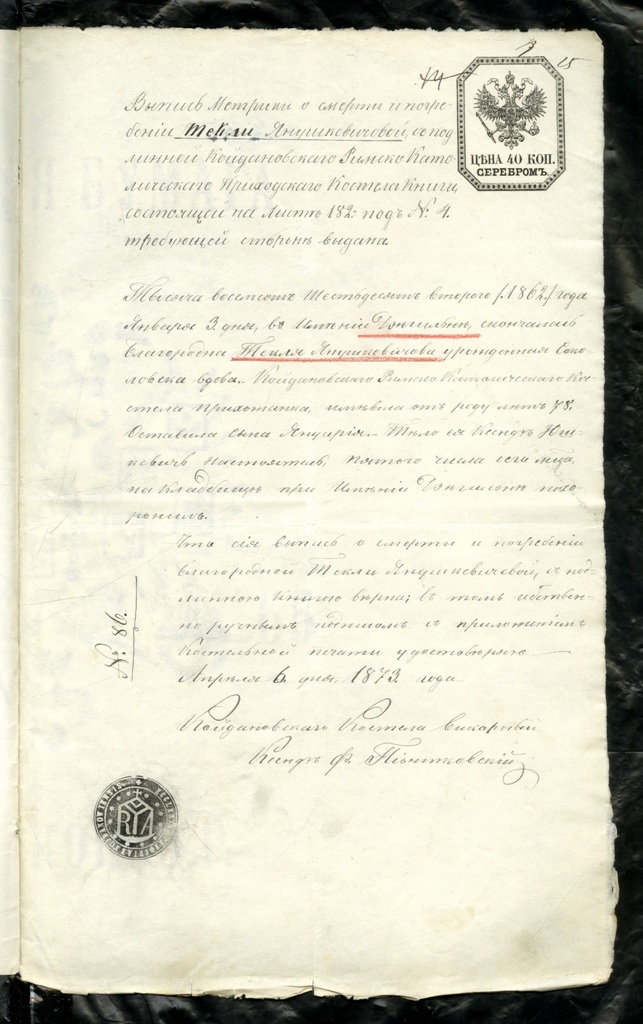 14 2 15
ЦѢНА 40 КОП.
СЕРЕБРОМЪ.
Выпись Метрики о смерти и погре-
бенiи Текли Янушкевичовой, съ под-
линной Койдановскаго Римско Като-
лическаго Приходскаго Костела Книги,
состоящей на листѣ 182. подъ № 4.
требующей сторонѣ выдана.
Тысяча восемсотъ шестьдесятъ втораго /:1862/ года
Января 3. дня, въ Имѣнiи скончалась
благородна Текля Янушкевичова урожденная Соко-
ловска вдова. Койдановскаго Римско Католическаго Ко-
стела прихожанка, имѣвша отъ роду лѣтъ 78.
Оставила сына Януарiя. Тѣло ея Ксендзъ Юш-
кевичь настоятель, пятого числа сего м-ца,
на кладбищѣ при Имѣнiи похо-
ронилъ.
Что сiя выпись о смерти и погребенiи
благородной Текли Янушкевичевой, съ под-
линною книгою вѣрна; въ томъ собствен-
но ручнымъ подписомъ съ приложенiемъ
костельной печати удостовѣряю
Апрѣля 6. дня, 1873 года
№ 86.
Койдановскаго Костела викарный
Ксендзъ Ф. Пiонтковскiй